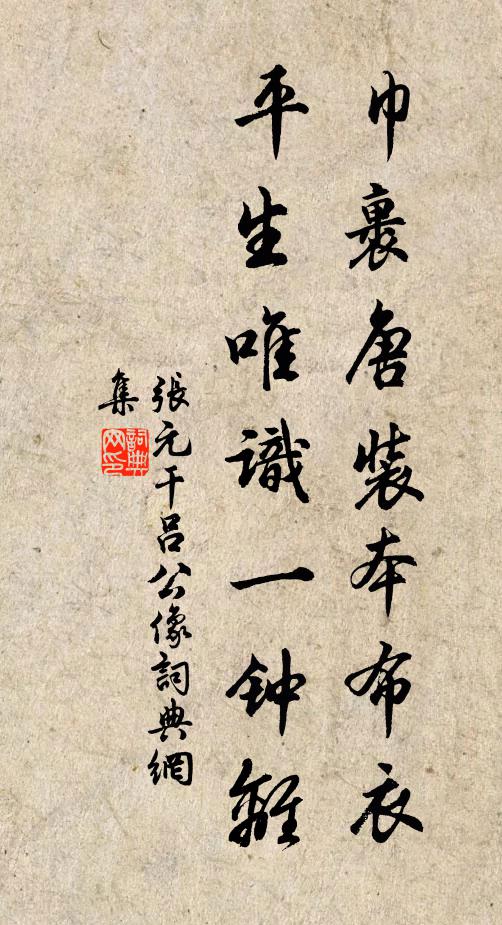 巾裹唐装本布衣
平生唯識一钟離
張元干吕公像詞典網
集
詞典
网印